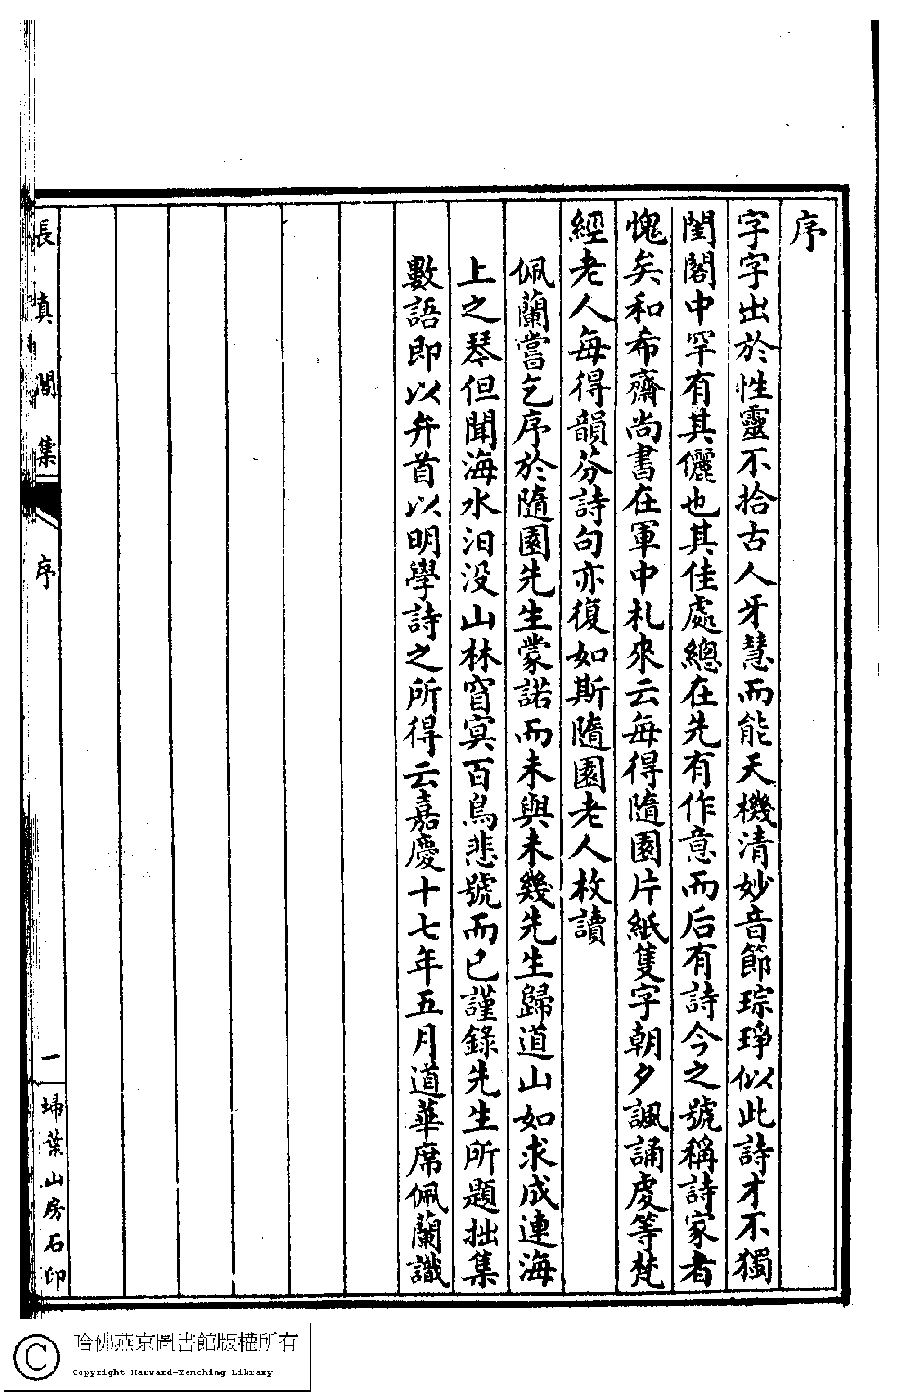 序
字字出於性靈不拾古人牙慧而能天機清妙音節琮琤似此詩才不獨
閨閣中罕有其儷也其佳處總在先有作意而后有詩今之號稱詩家者
愧矣和希齋尚書在軍中札來云每得隨園片紙隻字朝夕諷誦虔等梵
經老人每得韻芬詩句亦復如斯隨園老人枚讀
佩蘭嘗乞序於隨園先生蒙諾而未與未幾先生歸道山如求成連海
上之琴但聞海水汩没山林窅冥百鳥悲號而已謹錄先生所題拙集
數語即以弁首以明學詩之所得云嘉慶十七年五月道華席佩蘭識
長真閣集
序
一
埽葉山房石印
哈佛燕京圖書館版權所有
Copyright Harvard-Yenching Library